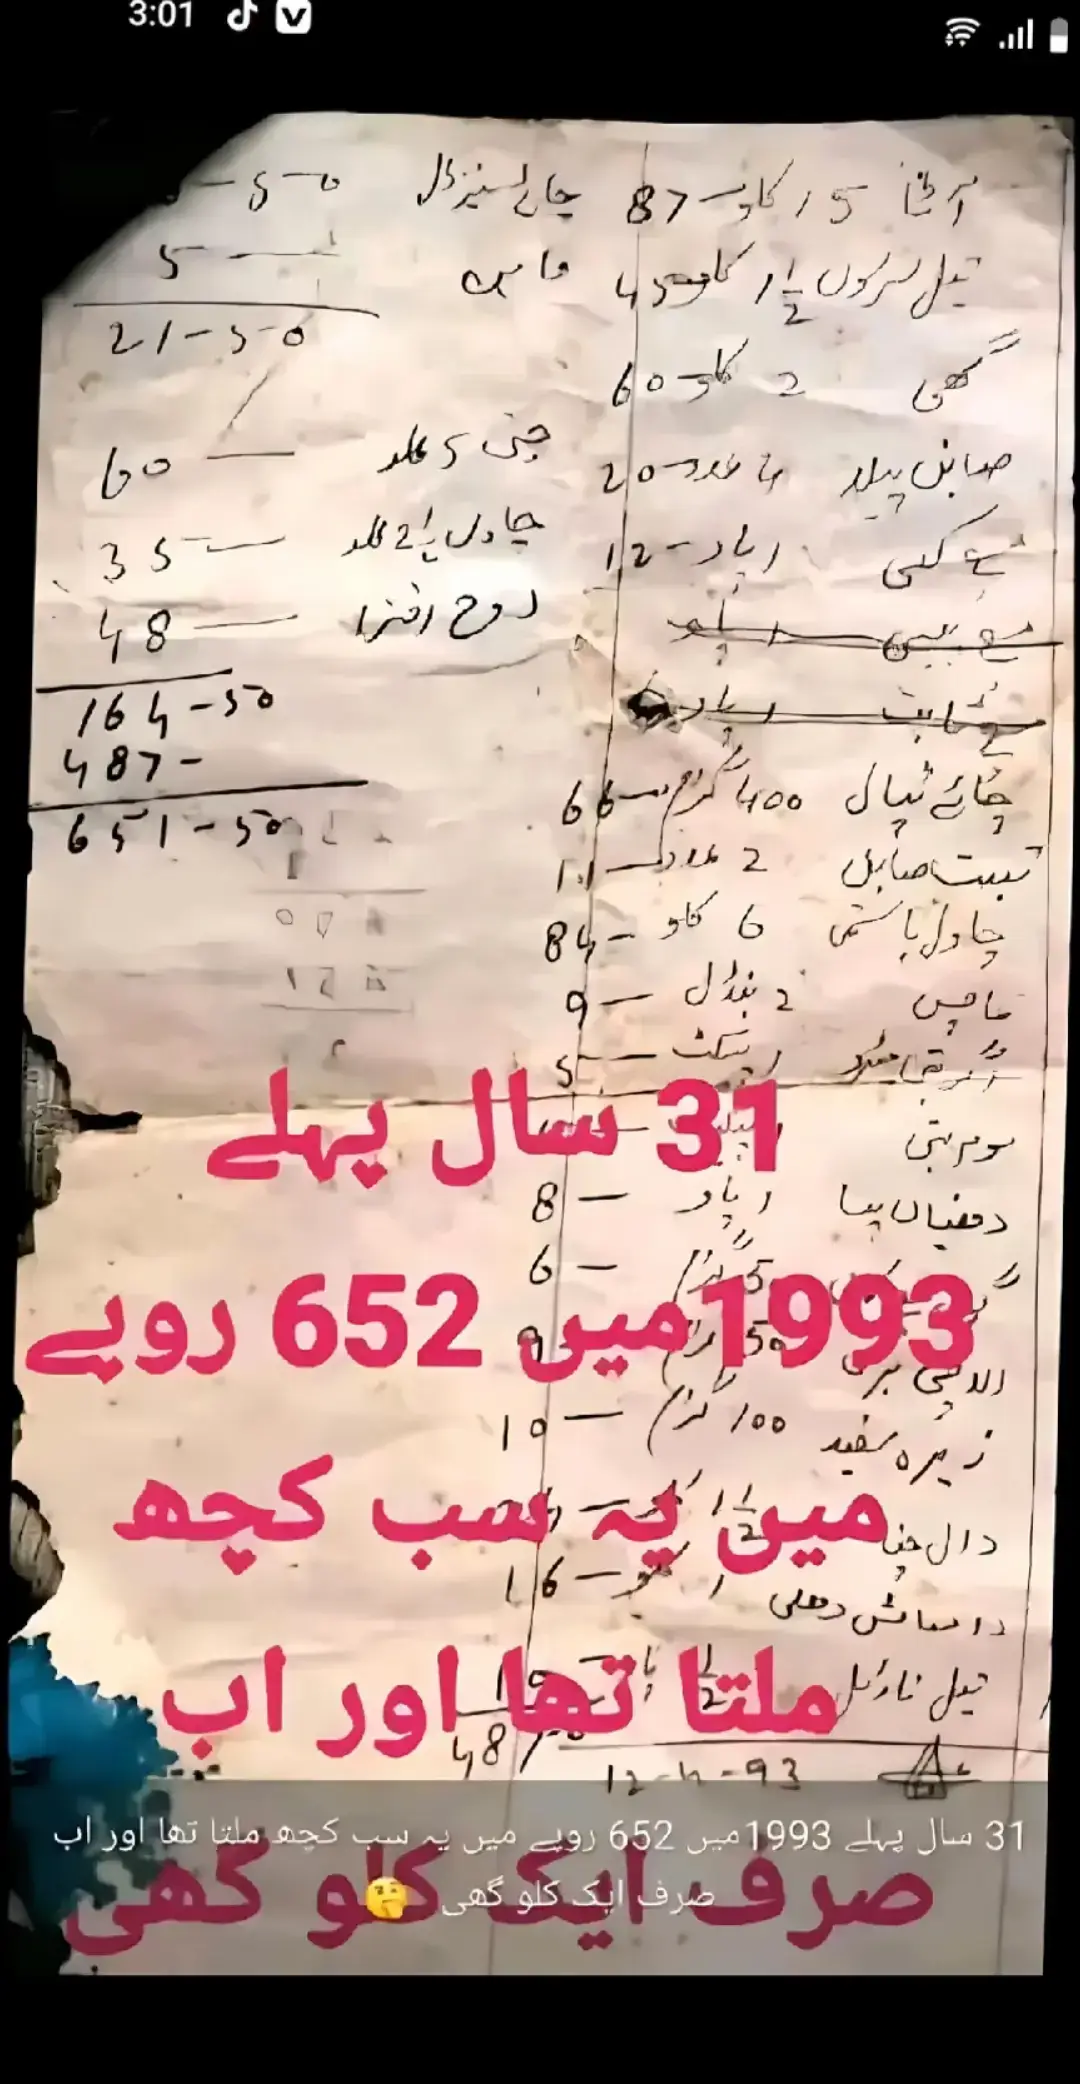 3:01
آٹا 15 کلو - 87
تیل سرسوں 1 1/2 کلو 45
گھی 2 کلو - 60
صابن پیلا 4 عدد - 20
12 -
چائے ٹپال 400 گرام - 66
تبت صابن 2 عدد - 11
چاول باسمتی 6 کلو - 84
ماچس 2 بنڈل - 9
پیکٹ - 5
موم بتی
دھنیاں پسا 1 پاو - 8
50 گرام - 6
الائچی 50 گرام 9
زیرہ سفید 100 گرام - 10
دال چنا 1 1/2
دال ماش دھلی 1 کلو - 16
تیل ناریل 1/2
487
12-4-93
چائے 5-50
ماچس 5
21-50
چینی 5 کلو - 60
چاول 2 1/2 کلو - 35
روح افزا - 48
164-50
487-
651-50
31 سال پہلے
1993میں 652 روپے
میں یہ سب کچھ
ملتا تھا اور اب
صرف ایک کلو گھی
31 سال پہلے 1993میں 652 روپے میں یہ سب کچھ ملتا تھا اور اب
صرف ایک کلو گھی 🤔